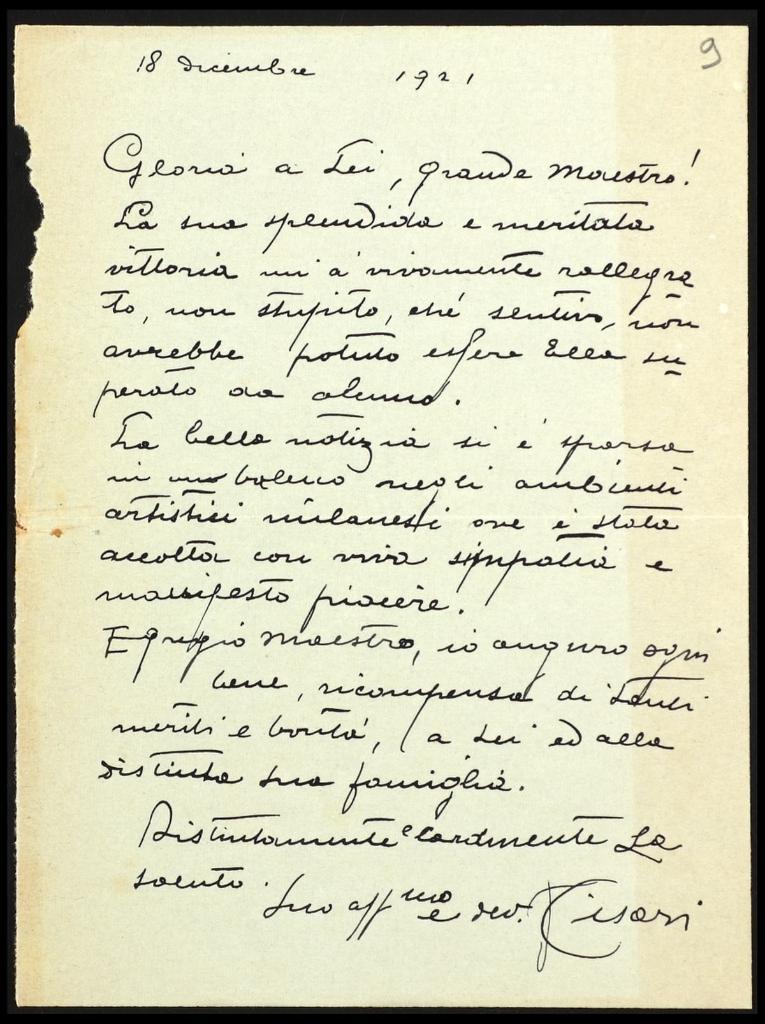 9
18 dicembre 1921
Gloria a Lei, grande Maestro!
La sua splendida e meritata
vittoria mi à vivamente rallegra
to, non stupito, ché sentivo, non
avrebbe potuto essere Ella su
perato da alcuno.
La bella notizia si è sparsa
in un baleno negli ambienti
artistici milanesi ove è stata
accolta con viva simpatia e
manifesto piacere.
Egregio Maestro, io auguro ogni
bene, ricompensa di tanti
meriti e bontà, a Lei ed alla
distinta sua famiglia.
Distintamente e cordmente La
saluto.
Suo affmo e dev.